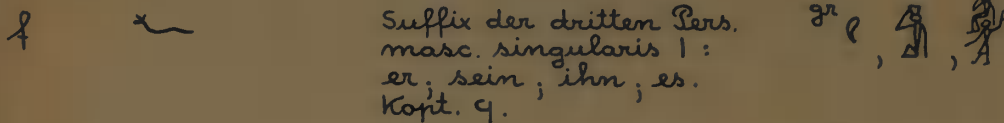 f 𓆑 Suffix der dritten Pers. gr
masc. singularis I :
er; sein; ihn; es.
Kopt. ϥ.